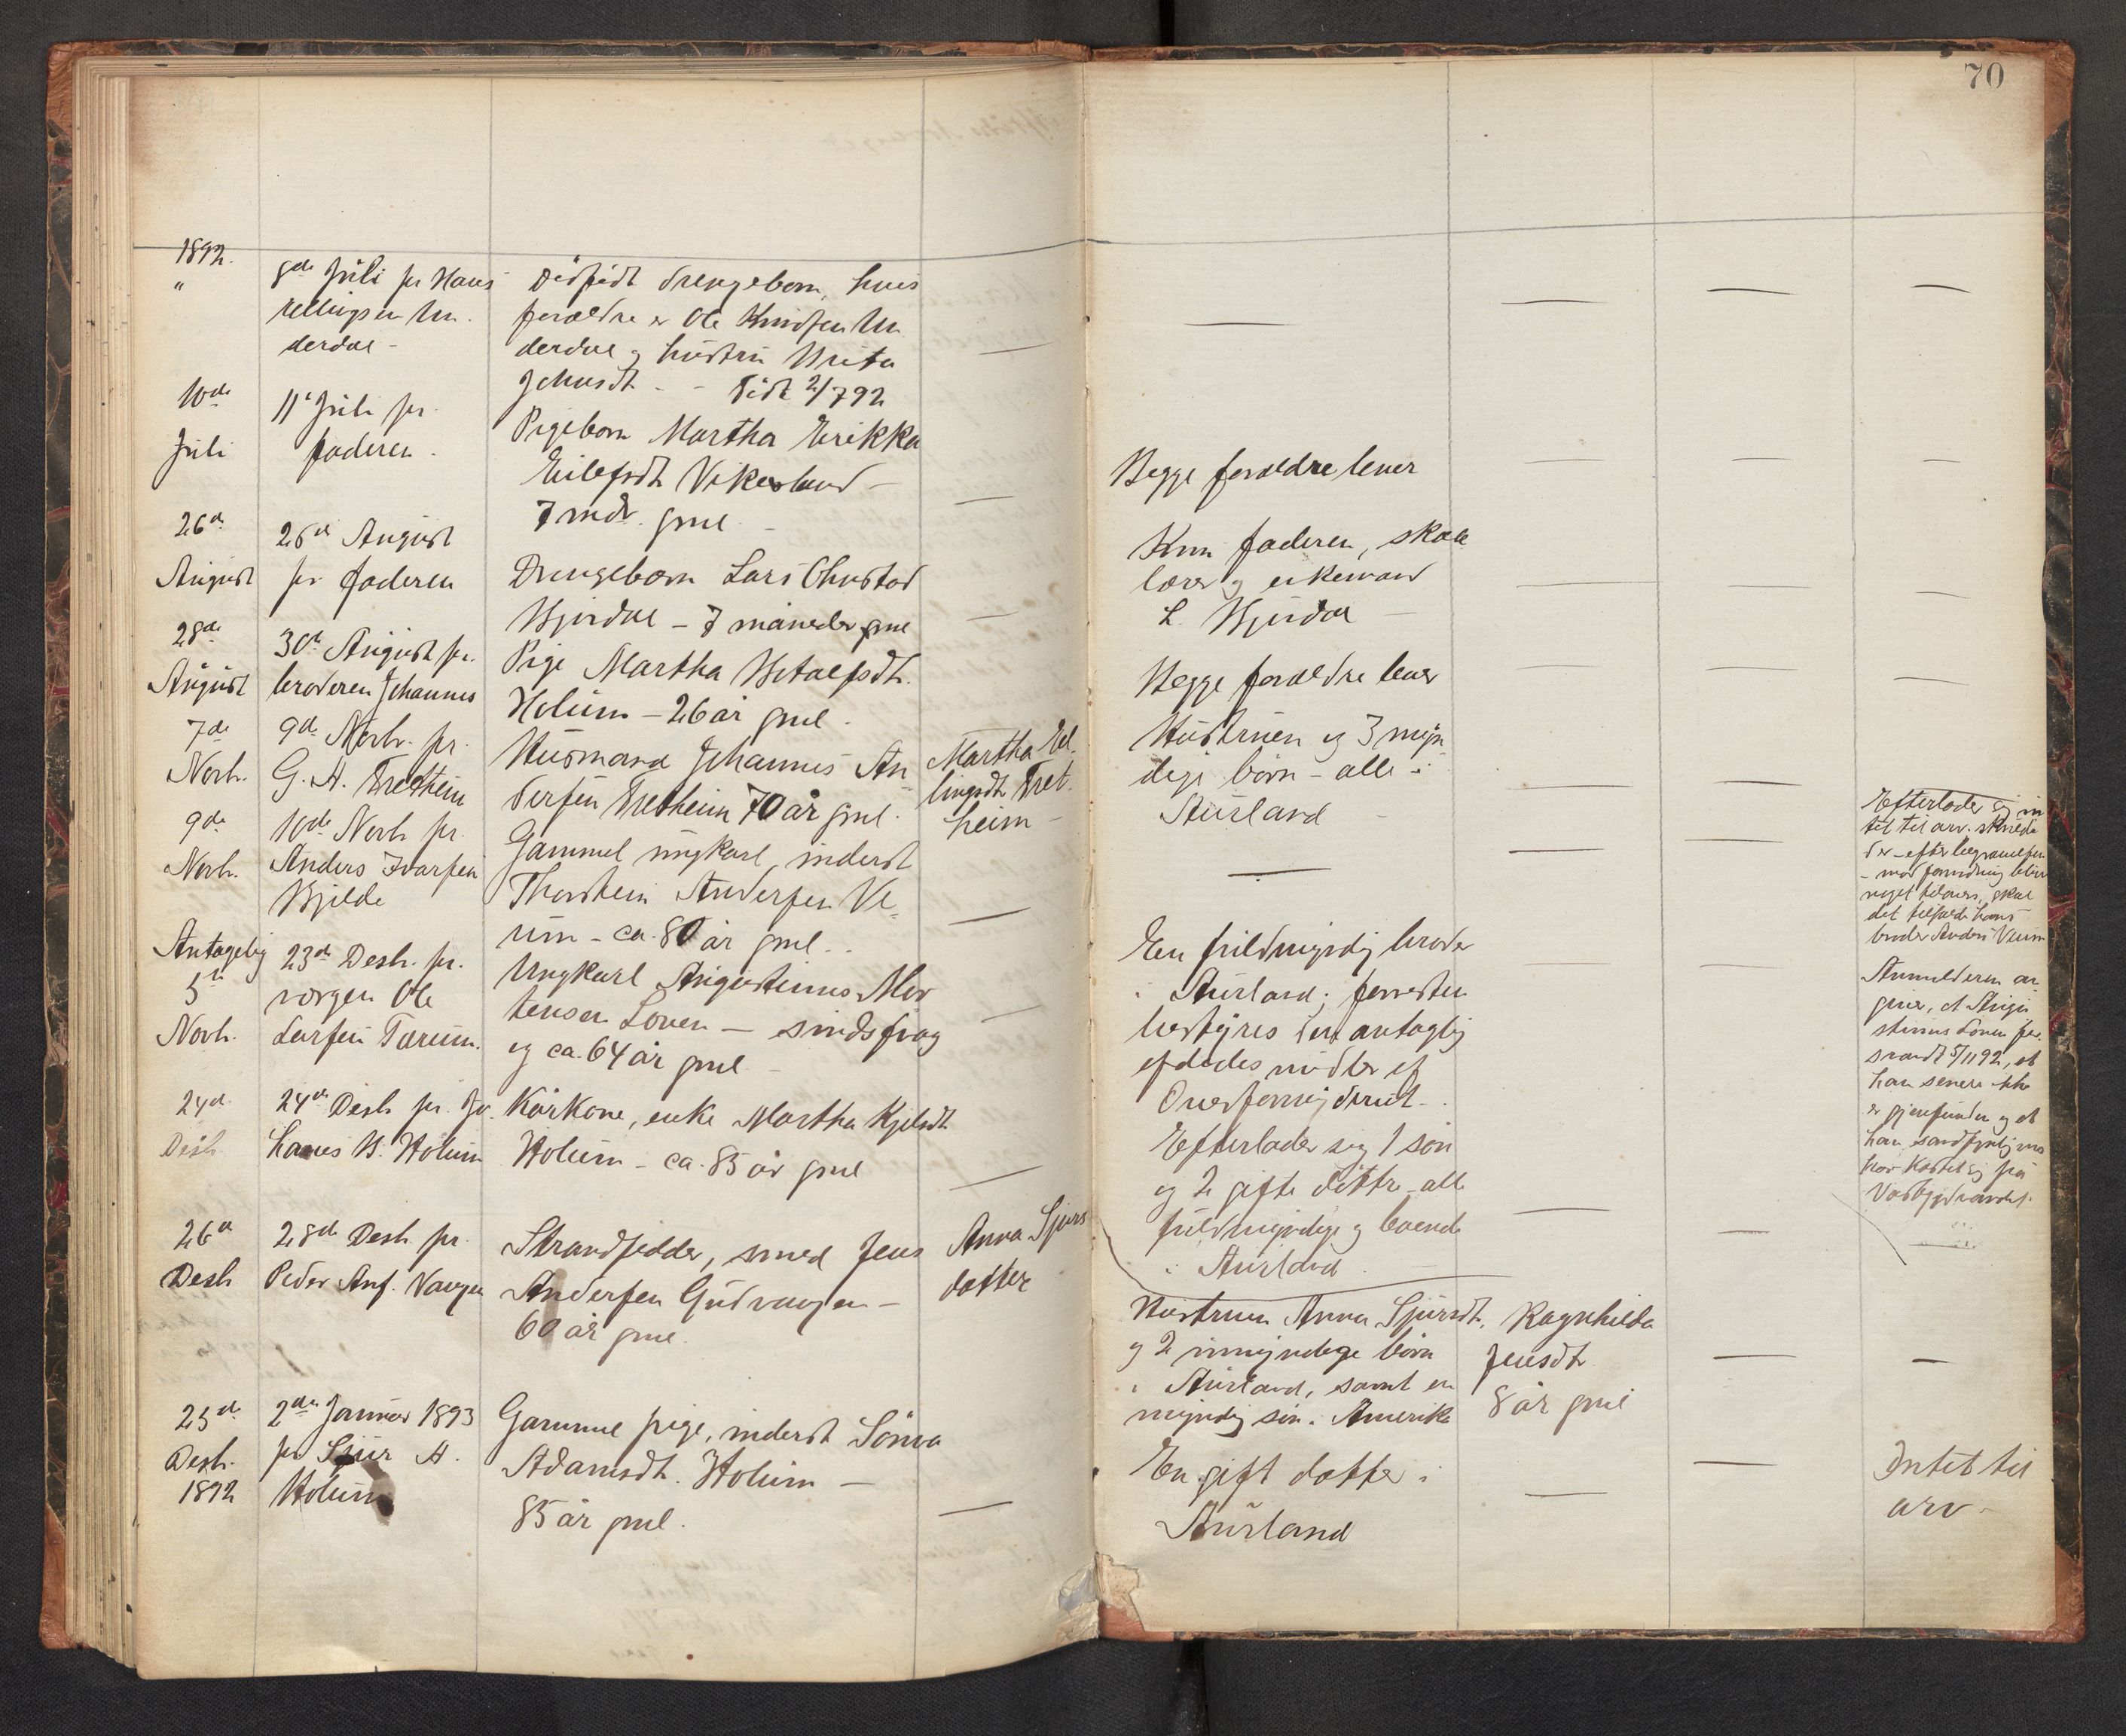 70
1892.
"
8de Juli pr Hans
Ellingsen Un
derdal -
Dødfødt drengebarn, hvis
forældre er Ole Knudsen Un
derdal og hustru Brita
Johnsdt. - Født 2/7 92
—
10de
Juli
11te Juli pr.
faderen.
Pigebarn Martha Erikka
Eilefsdt Vikesland -
7 mdr. gml -
—
Begge forældre lever
26de
August
26de August
pr faderen
Drengebarn Lars Chrstad
Bjerdal - 7 måneder gml
—
Kun faderen, skole
lærer og enkemand
L. Bjerdal
28de
August
30te August pr.
broderen Johannes
Pige Martha Botolfsdt.
Holum - 26 år gml.
Begge forældre lever
7de
Novb.
9de Novb. pr.
G. A. Fretheim
Husmand Johannes An
dersen Fretheim 70 år gml.
Martha El
lingsdt Fret
heim -
Hustruen og 3 myn
dige børn - alle i
Aurland -
9de
Novb.
10de Novb pr.
Anders Ivarsen
Bjelde
Gammel ungkarl, inderst
Thorstein Andersen Ve
um - ca. 80 år gml.
—
Efterlader sig in
tet til arv.
der - efter begravelsen
- mod formodning blive
noget tilovers, skal
det tilfalde hans
broder Anders Veum
Antagelig
5te
Novb.
23de Desb. pr.
vergen Ole
Larsen Turum.
Ungkarl Augustinus Mor
tensen Loven - sindssvag
og ca. 64 år gml -
—
En fuldmyndig broder
i Aurland; forresten
bestyres den antaglig
afdødes midler af
Overformynderiet -
Anmelderen an
giver, at Augu
stinus Loven for
svandt 5/11 92, at
han senere ikke
er gjenfunden og at
han sandsynlig må
have kastet sig på
24de
Desb
24de Desb pr. Jo
hannes B. Holum
Kårkone, enke Martha Kjelsdt
Holum - ca. 85 år gml
—
Efterlader sig 1 søn
og 2 gifte døttre - alle
fuldmyndige og boende
i Aurland
26de
Desb
28de Desb pr.
Peder Ans. Vangen
Strandsidder, smed Jens
Andersen Gudvangen -
60 år gml.
Anna Sjurs
datter
Hustruen Anna Sjursdt.
og 2 umyndige børn
i Aurland, samt en
myndig søn i Amerika
Ragnhilda
Jensdt
8 år gml
25de
Desb.
1892
2den Januar 1893
pr Sjur A.
Holum
Gammel pige, inderst Sønva
Adamsdt. Holum -
85 år gml.
—
En gift datter i
Aurland
Intet til
arv -